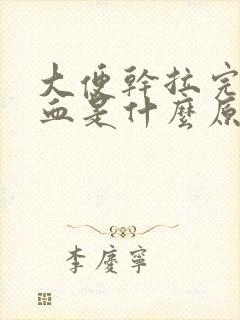 大便幹拉完
血是什麼原
李慶寧